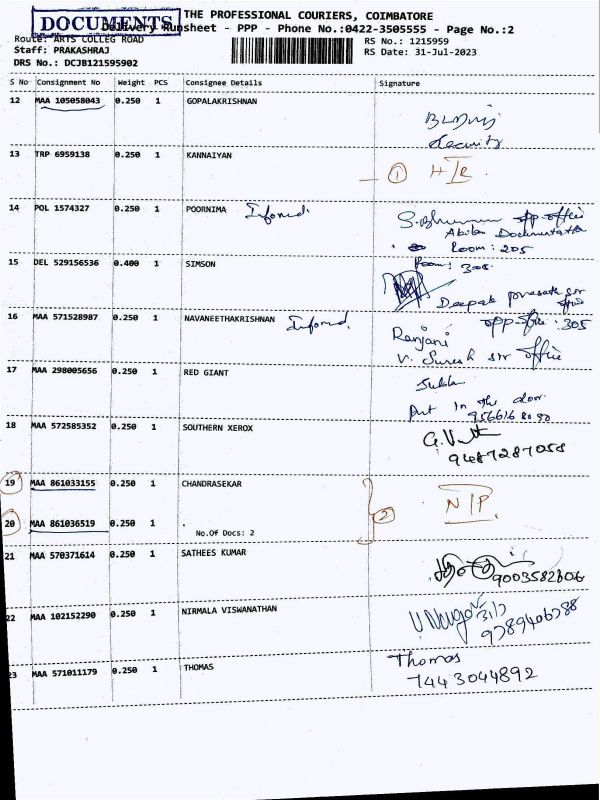 DOCUMENTS
THE PROFESSIONAL COURIERS, COIMBATORE
Delivery Runsheet - PPP - Phone No.:0422-3505555 - Page No.:2
Route: ARTS COLLEG ROAD
RS No.: 1215959
Staff: PRAKASHRAJ
RS Date: 31-Jul-2023
DRS No.: DCJB121595902
S No Consignment No Weight PCS Consignee Details Signature
12 MAA 105058043 0.250 1 GOPALAKRISHNAN
Security
13 TRP 6959138 0.250 1 KANNAIYAN
1
14 POL 1574327 0.250 1 POORNIMA
opp office
Room: 205
15 DEL 529156536 0.400 1 SIMSON
Room: 305
Deepak
office
16 MAA 571528987 0.250 1 NAVANEETHAKRISHNAN
opp office: 305
Ranjani
V. Suresh sir office
17 MAA 298005656 0.250 1 RED GIANT
Put in the door
18 MAA 572585352 0.250 1 SOUTHERN XEROX
9487287058
19 MAA 861033155 0.250 1 CHANDRASEKAR
2 N/P
20 MAA 861036519 0.250 1 .
No.Of Docs: 2
21 MAA 570371614 0.250 1 SATHEES KUMAR
9003582806
22 MAA 102152290 0.250 1 NIRMALA VISWANATHAN
9789406788
23 MAA 571011179 0.250 1 THOMAS
Thomas
7443044892